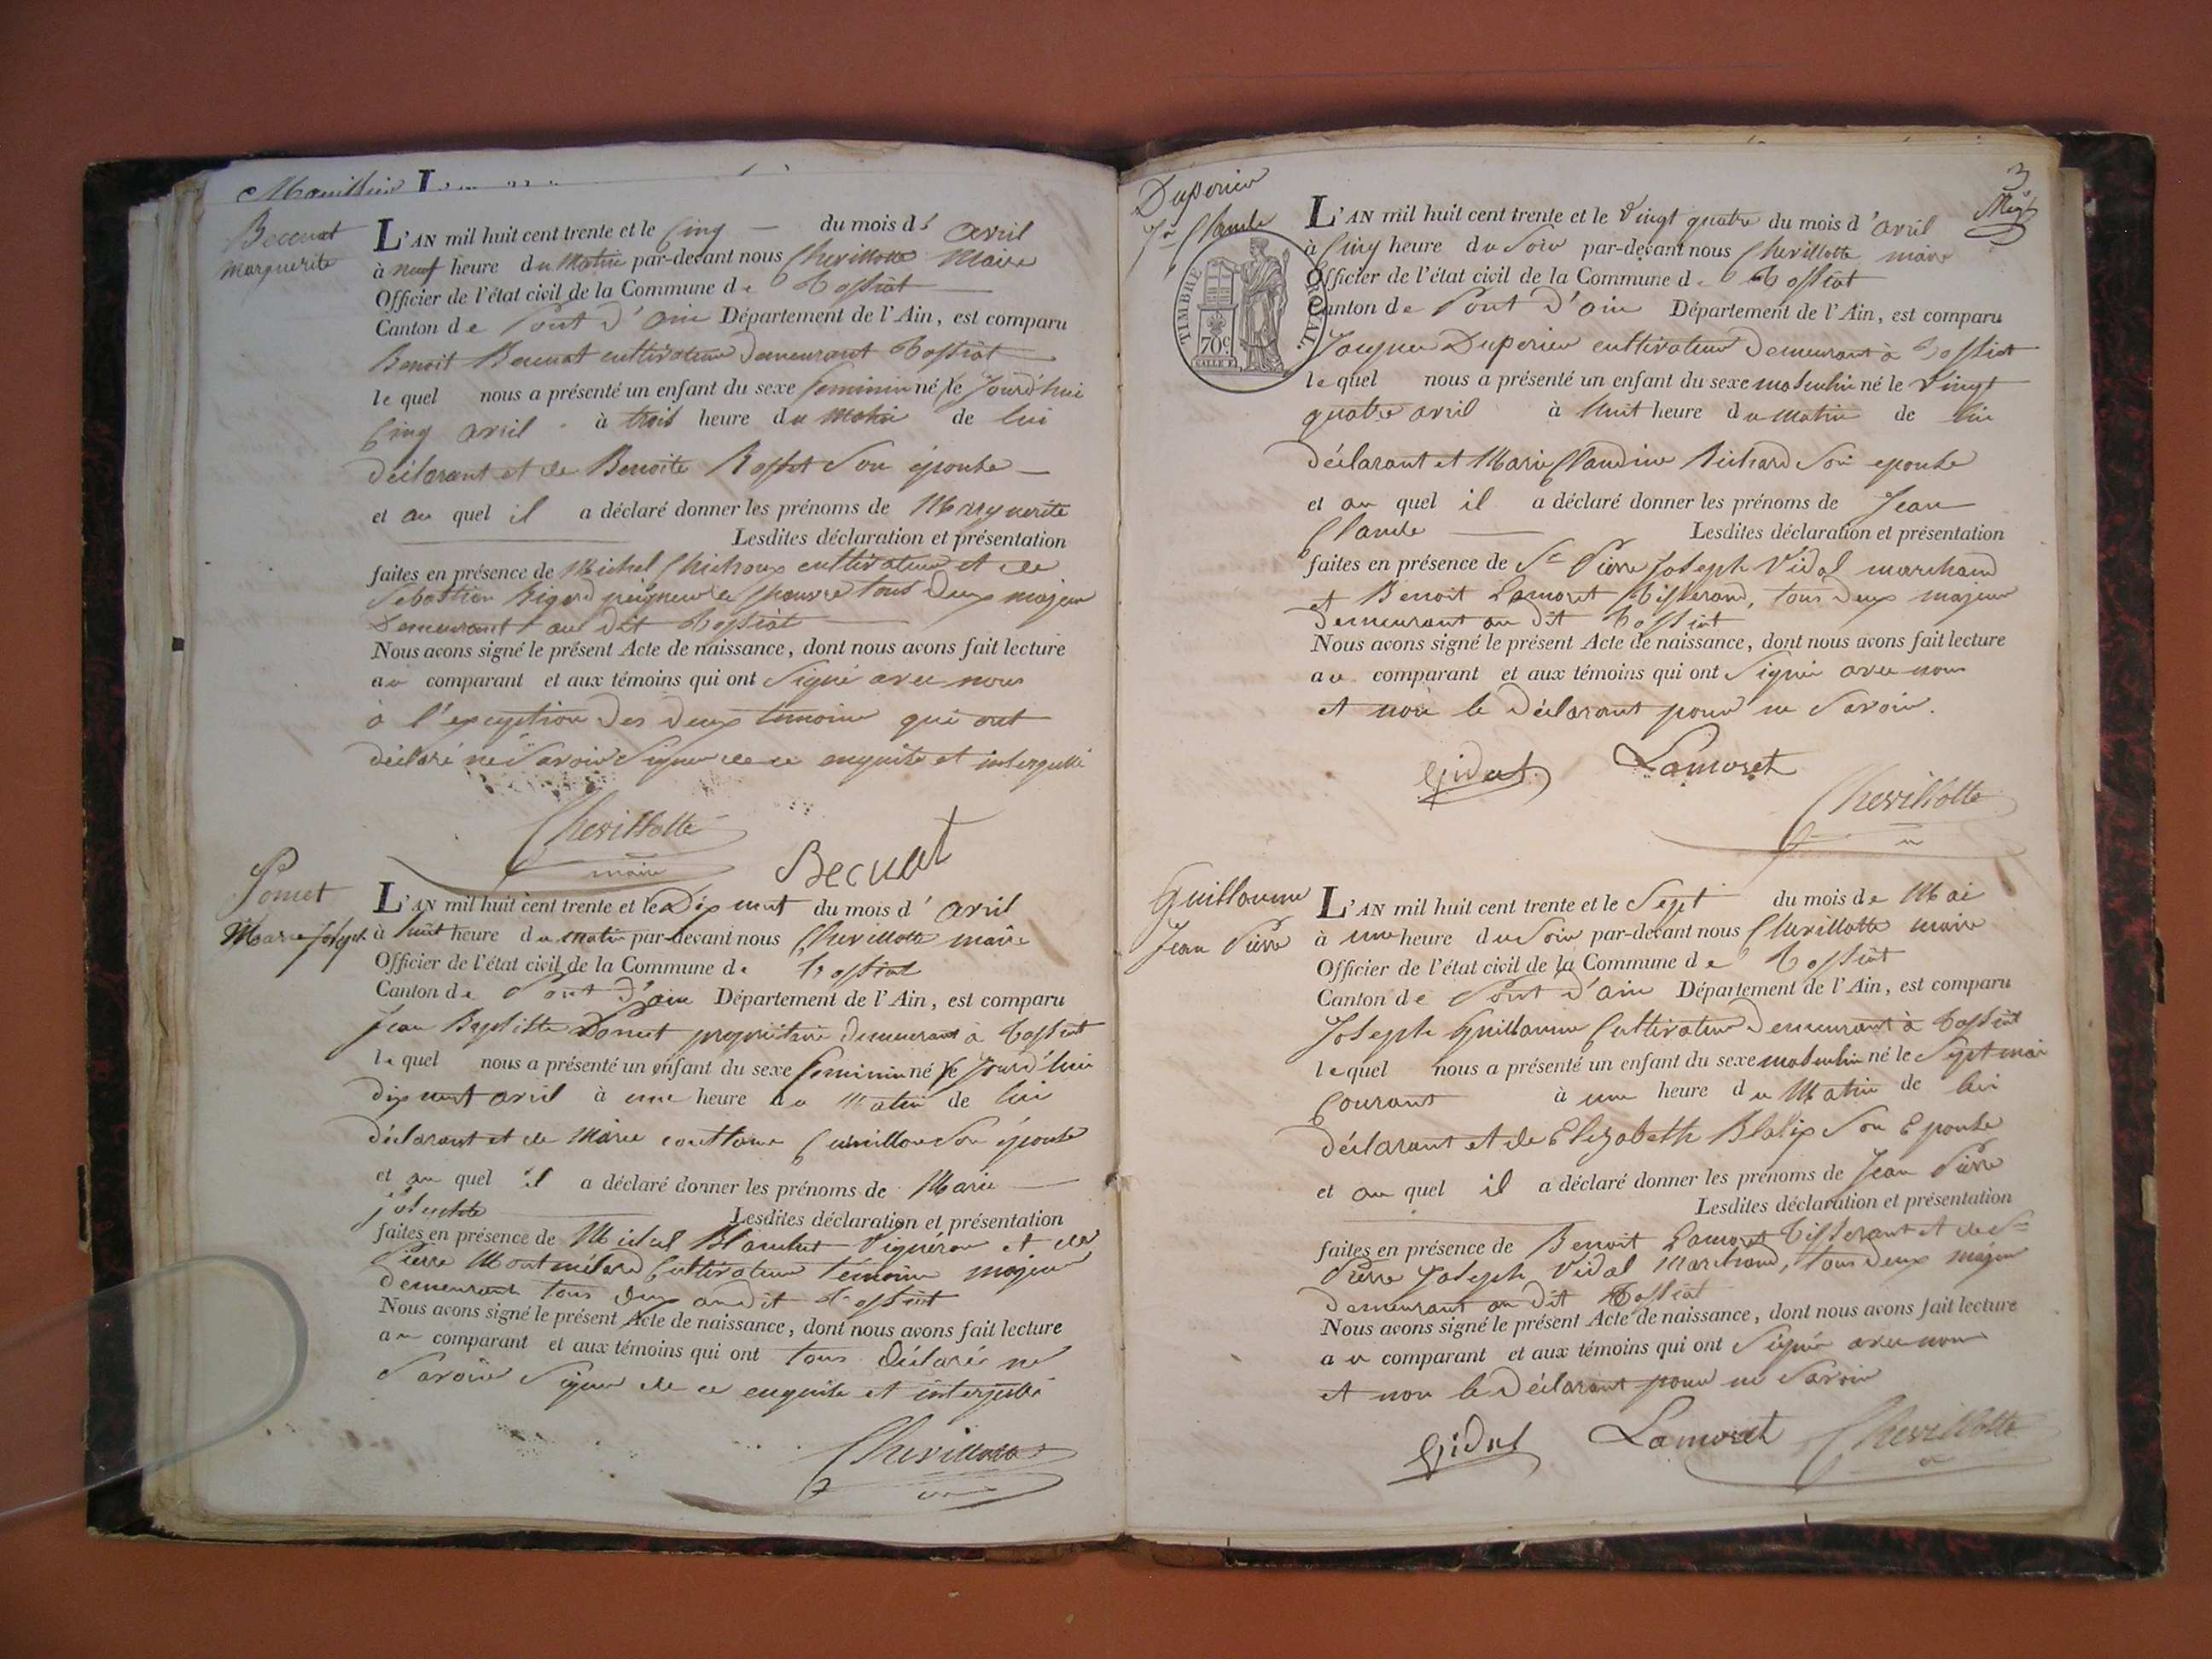 Becuat
Marguerite
L'AN mil huit cent trente et le Cinq du mois d' avril
à neuf heure du Matin par-devant nous Chevillotte Maire
Officier de l'état civil de la Commune de Tossiat
Canton de Pont d'ain Département de l'Ain, est comparu
Benoit Becuat cultivateur demeurant Tossiat
lequel nous a présenté un enfant du sexe feminin né le Jourd'hui
Cinq avril à trois heure du Matin de lui
déclarant et de Benoite Rosset Son épouse
et au quel il a déclaré donner les prénoms de Marguerite
Lesdites déclaration et présentation
faites en présence de Michel Chichoux cultivateur et de
Sebastien Rigard peigneur de Chanvre tous deux majeur
Demeurant au dit Tossiat
Nous avons signé le présent Acte de naissance, dont nous avons fait lecture
au comparant et aux témoins qui ont Signé avec nous
à l'exception des deux témoins qui ont
déclaré ne Savoir Signer de ce enquits et interpellé
Chevillotte
maire
Becuat
Pomet
Marie Joseph
L'AN mil huit cent trente et le Dix neuf du mois d' avril
à huit heure du matin par-devant nous Chevillotte maire
Officier de l'état civil de la Commune de Tossiat
Canton de Pont d'ain Département de l'Ain, est comparu
Jean Baptiste Pomet propriétaire demeurant à Tossiat
lequel nous a présenté un enfant du sexe feminin né le Jourd'hui
dix neuf avril à une heure du Matin de lui
déclarant et de Marie Son épouse
et au quel il a déclaré donner les prénoms de Marie
Josephte
Lesdites déclaration et présentation
faites en présence de Michel Blanchet Vigneron et de
Pierre Montmélard Cultivateur témoins majeur
demeurant tous deux audit Tossiat
Nous avons signé le présent Acte de naissance, dont nous avons fait lecture
au comparant et aux témoins qui ont tous déclaré ne
Savoir Signer de ce enquits et interpellé
Chevillotte
3
Duperier
Jn Claude
TIMBRE ROYAL.
70c
L'AN mil huit cent trente et le Vingt quatre du mois d' avril
à Cinq heure du Soir par-devant nous Chevillotte maire
Officier de l'état civil de la Commune de Tossiat
Canton de Pont d'ain Département de l'Ain, est comparu
Jacques Duperier cultivateur demeurant à Tossiat
lequel nous a présenté un enfant du sexe masculin né le Vingt
quatre avril à huit heure du matin de lui
déclarant et Marie Claudine Richard Son epouse
et au quel il a déclaré donner les prénoms de Jean
Claude Lesdites déclaration et présentation
faites en présence de Sr Pierre Joseph Vidal marchand
et Benoit Lamoret Tisserand, tous deux majeur
demeurant au dit Tossiat
Nous avons signé le présent Acte de naissance, dont nous avons fait lecture
au comparant et aux témoins qui ont Signé avec nous
et non le déclarant pour ne Savoir.
Vidal Lamoret
Chevillotte
Guillaume
Jean Pierre
L'AN mil huit cent trente et le Sept du mois de Mai
à une heure du Soir par-devant nous Chevillotte maire
Officier de l'état civil de la Commune de Tossiat
Canton de Pont d'ain Département de l'Ain, est comparu
Joseph Guillaume Cultivateur demeurant à Tossiat
lequel nous a présenté un enfant du sexe masculin né le Sept mai
Courant à une heure du Matin de lui
déclarant et de Elizabeth Son Epouse
et au quel il a déclaré donner les prénoms de Jean Pierre
Lesdites déclaration et présentation
faites en présence de Benoit Lamoret Tisserant et de Sr
Pierre Joseph Vidal Marchand, tous deux majeur
demeurant au dit Tossiat
Nous avons signé le présent Acte de naissance, dont nous avons fait lecture
au comparant et aux témoins qui ont Signé avec nous
et non le Déclarant pour ne Savoir
Vidal Lamoret Chevillotte